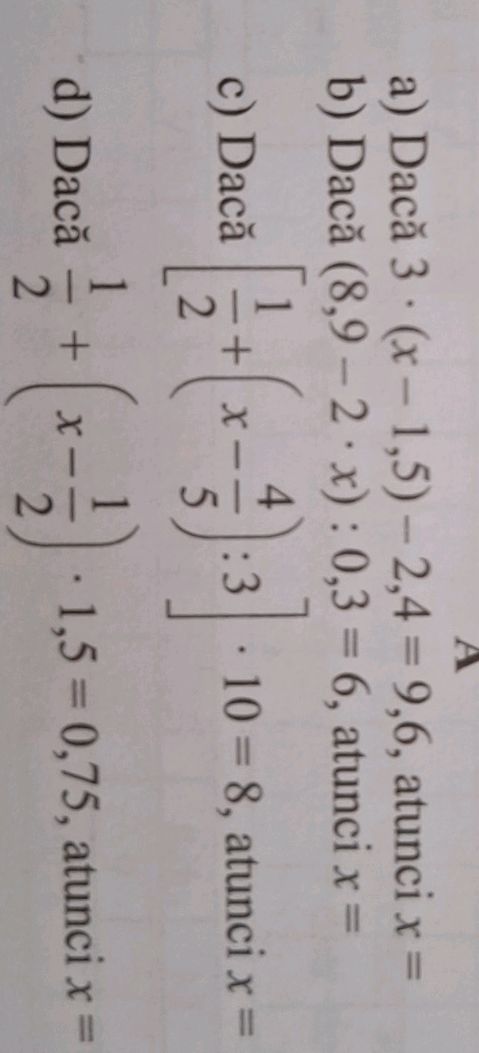 A
a) Dacă 3 · (x – 1,5) – 2,4 = 9,6, atunci x =
b) Dacă (8,9 – 2 · x) : 0,3 = 6, atunci x =
c) Dacă [1/2 + (x – 4/5) : 3] · 10 = 8, atunci x =
d) Dacă 1/2 + (x – 1/2) · 1,5 = 0,75, atunci x =